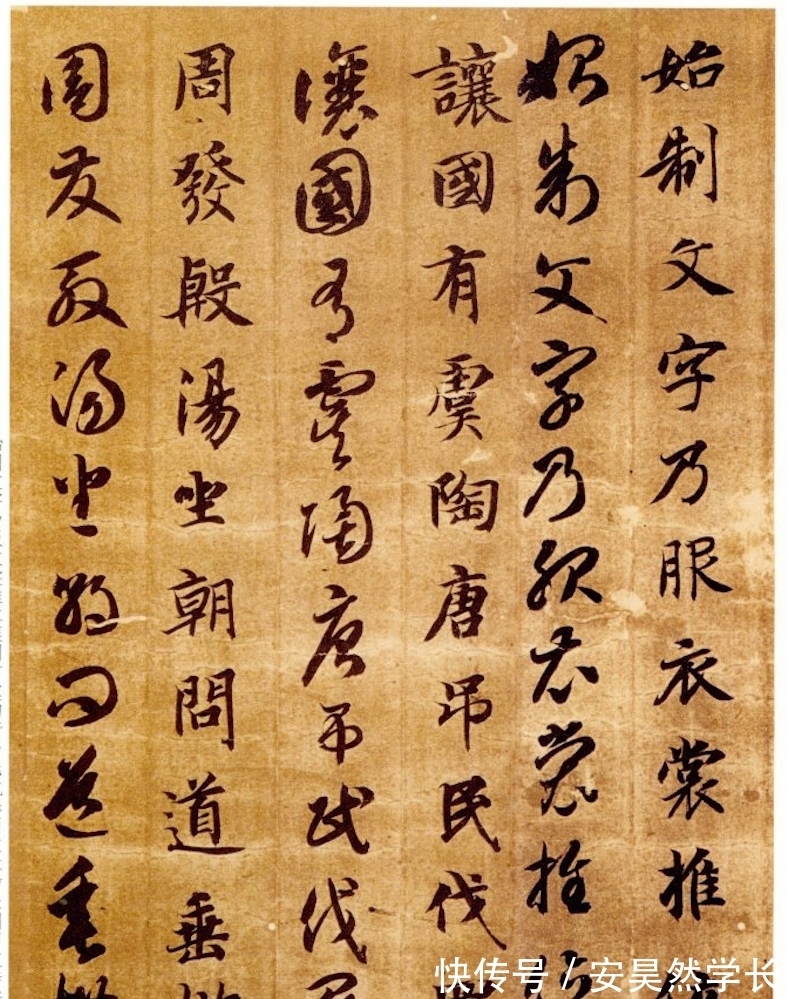 始制文字乃服衣裳推
始制文字乃服衣裳推
讓國有虞陶唐吊民伐
讓國有虞陶唐吊民伐
周發殷湯坐朝問道垂
周發殷湯坐朝問道垂
快传号/安昊然学长